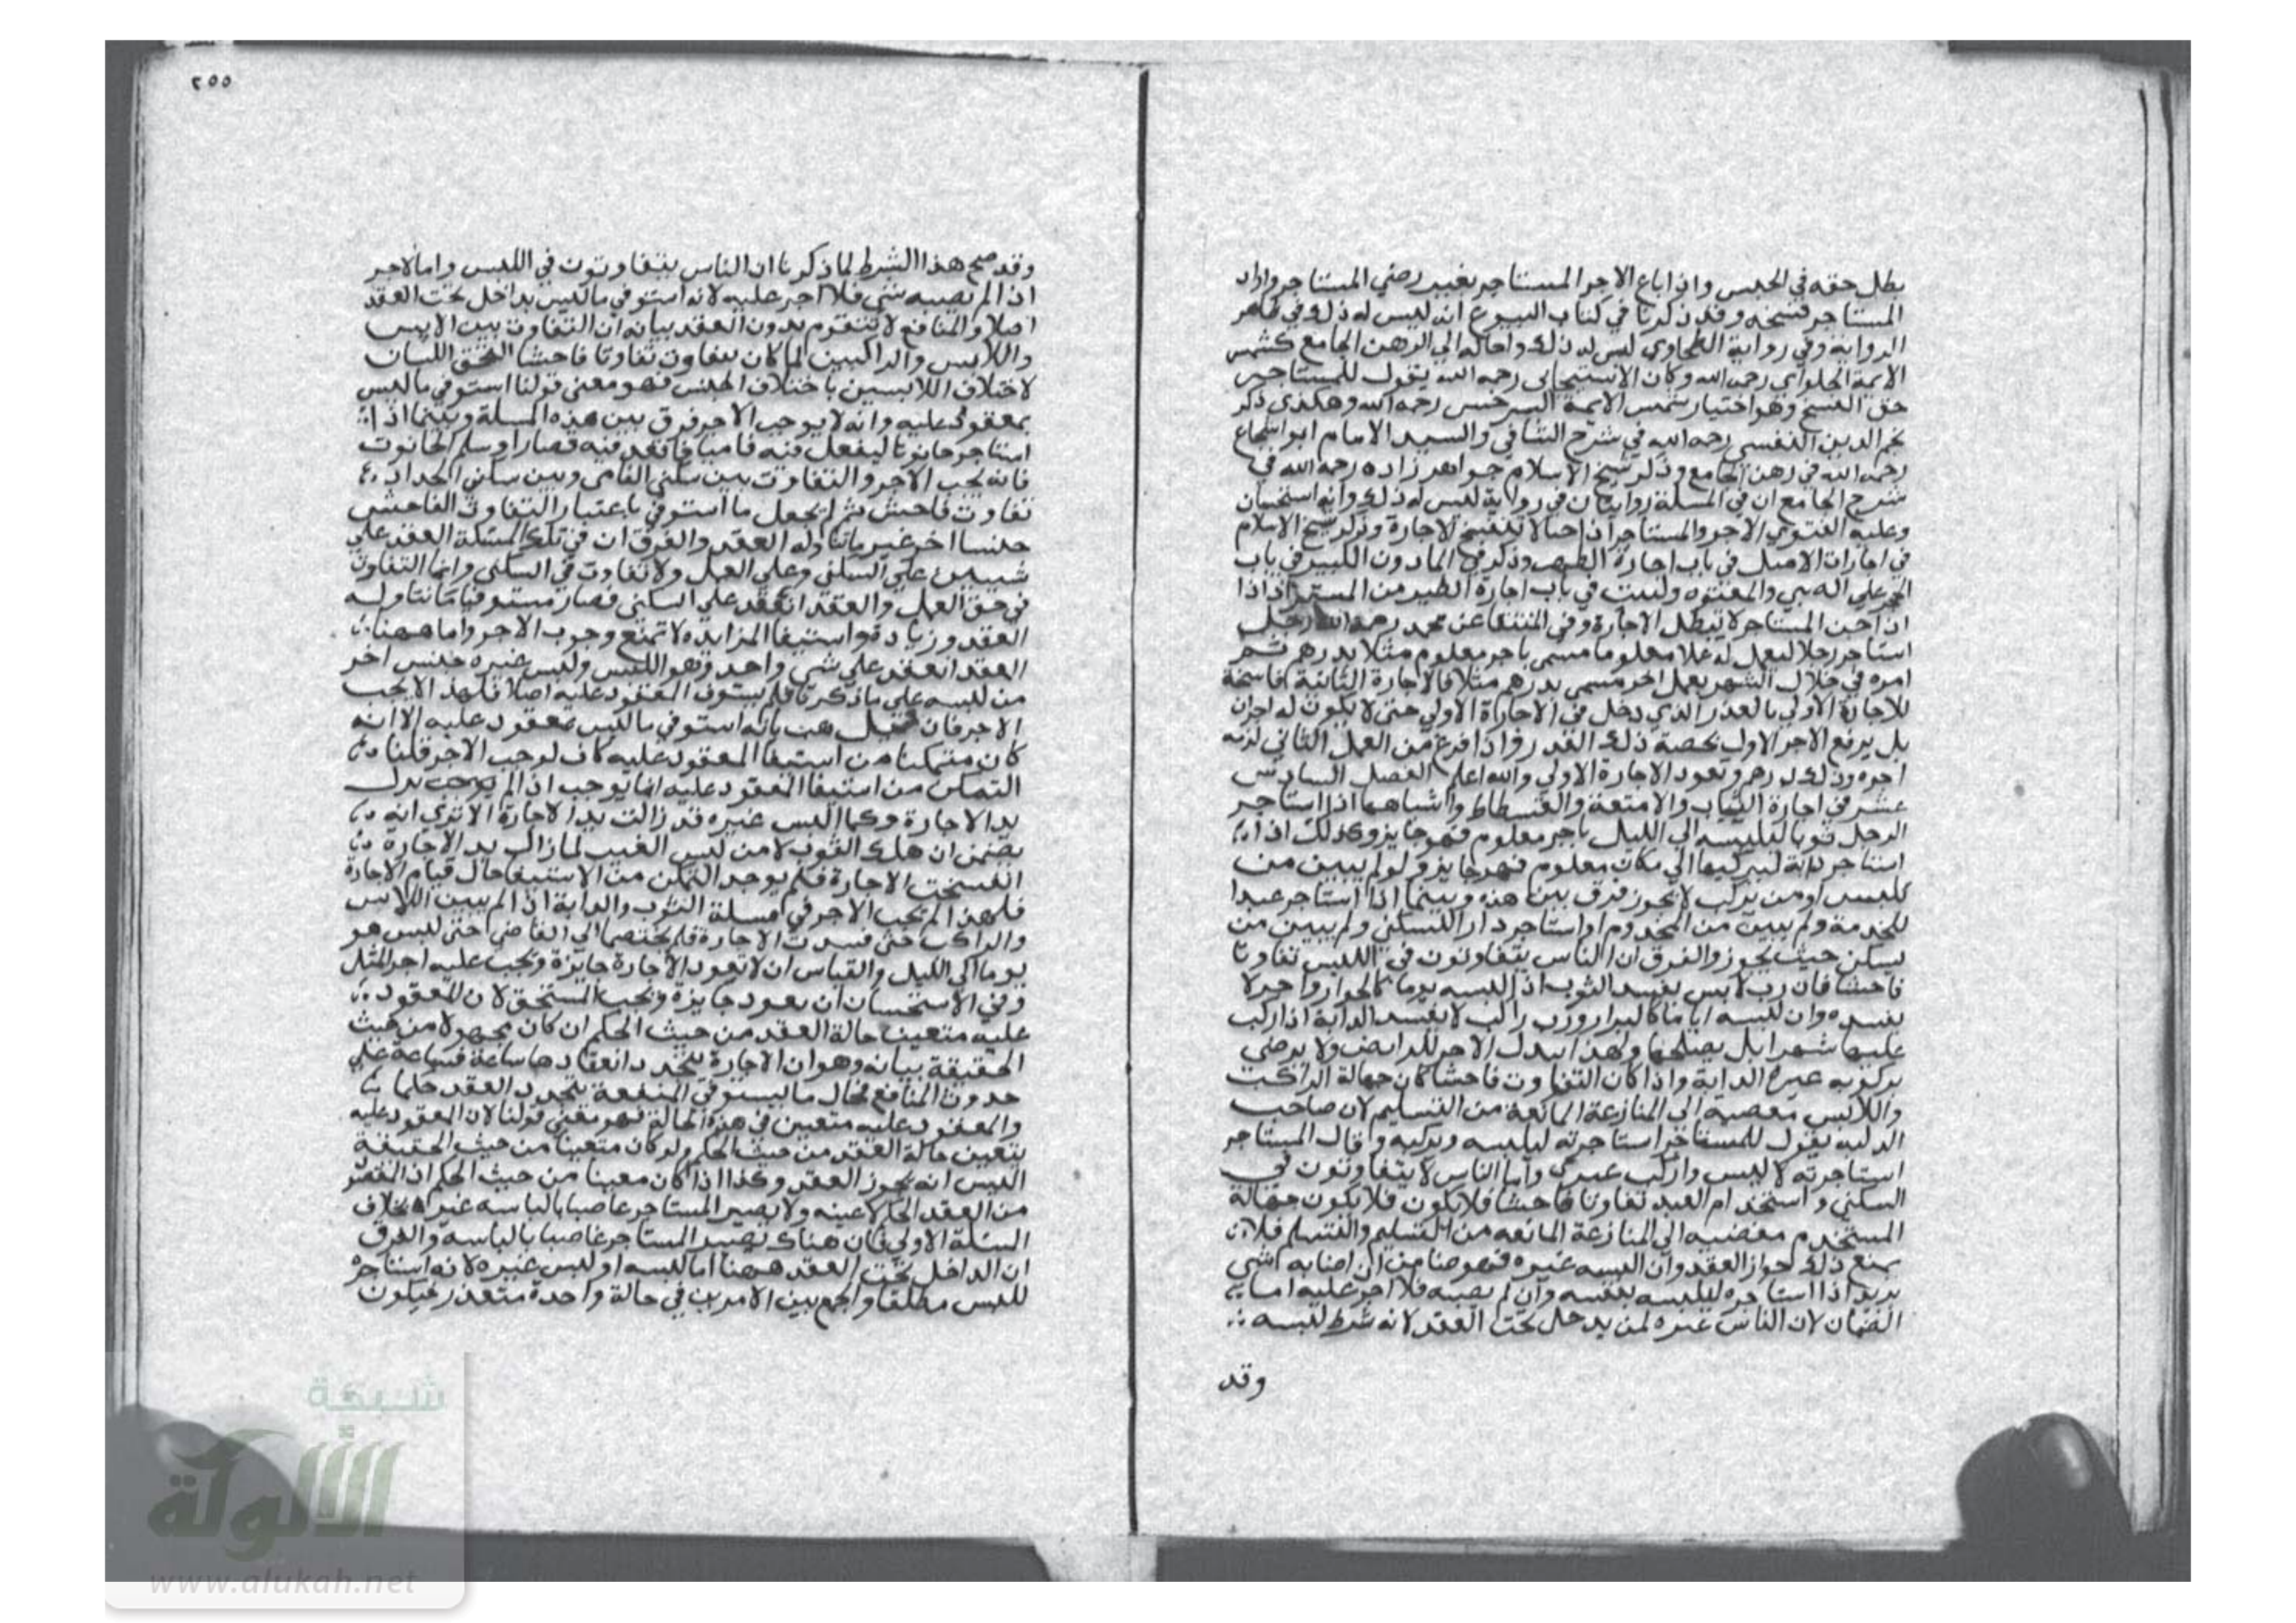 بطل حقه في الحبس واذا باع الاجر المستاجر بغير رضي المستاجر واراد
المستاجر فسخه وقد ذكرنا في كتاب البيوع انه ليس له ذلك وفي ظاهر
الرواية وفي رواية الطحاوي ليس له ذلك واحاله الي الرهن الجامع كشمس
الايمة الحلواي رحمه الله وكان الاسبيجابي رحمه الله يقول للمستاجر
حق الفسخ وهو اختيار شمس الايمة السرخسي رحمه الله وهكذى ذكر
نجم الدين النفسي رحمه الله في شرح الشافي والسيد الامام ابو اشجاع
رحمه الله في رهن الجامع وذكر شيخ الاسلام جواهر زاده رحمه الله في
شرح الجامع ان في المسلة روايتان في رواية ليس له ذلك وانه استحسان
وعليه الفتوي الاجر والمستاجر اذا لا تنفسخ الاجارة وذكر شيخ الاسلام
في اجارات الاصل في باب اجارة وذكر في الماذون الكبير في باب
الحجر علي الصبي والمعتوه وليست في باب اجارة الظير من
اذا جن المستاجر لا تبطل الاجارة وفي المنتقا عن محمد رحمه الله رجل
استاجر رجلا ليعمل له عملا معلوما مسمى باجر معلوم مثلا بدرهم ثم
امره في خلال الشهر بعمل اخر مسمى بدرهم مثلا فالاجارة الثانية فاسخة
للاجارة الاولي بالعذر الذي دخل في الاجارة الاولي حتى لا يكون له اجران
بل يرفع الاجر الاول بحصة ذلك القدر واذا فرغ من العمل الثاني لزمه
اجره وذلك درهم وتعود الاجارة الاولي والله اعلم الفصل السادس
عشر في اجارة الثياب والامتعة والفسطاط واشباهها اذا استاجر
الرجل ثوبا ليلبسه الي الليل باجر معلوم فهو جايز وكذلك اذا
استاجر دابة ليركبها الي مكان معلوم فهو جايز ولو لم يبين من
يلبس او من يركب لا يجوز فرق بين هذه وبينما اذا استاجر عبدا
للخدمة ولم يبين من المخدوم او استاجر دار للسكني ولم يبين من
يسكن حيث يجوز والفرق ان الناس يتفاوتون في اللبس تفاوتا
فاحشا فان رب لابس يفسد الثوب اذا لبسه يوما واخر لا
يفسده وان لبسه اياما ورب راكب لا يفسد الدابة اذا ركب
عليها شهرا بل يصلحها ولهذا يبدل الاجر للرايض ولا يرضي
بركوبه غيره الدابة واذا كان التفاوت فاحشا كان جهالة الراكب
واللابس مفضية الي المنازعة المانعة من التسليم لان صاحب
الدابة يقول للمستاجر استاجرته ليلبسه ويركبه وقال المستاجر
استاجرته لالبس واركب غيري واما الناس لا يتفاوتون في
السكني واستخدام العبد تفاوتا فاحشا فلا يكون جهالة
المستخدم مفضية الي المنازعة المانعة من التسليم والتسلم فلا
يمنع ذلك جواز العقد وان البسه غيره فهو ضامن ان اصابه شي
يريد اذا استاجره ليلبسه بنفسه وان لم يصبه فلا اجر عليه اما
الضمان لان الناس غيره لمن يدخل تحت العقد لانه شرط لبسه
وقد
٢٥٥
وقد صح هذا الشرط لما ذكرنا ان الناس يتفاوتون في اللبس واما الاجر
اذا لم يصبه شي فلا اجر عليه لانه استوفي ما ليس بداخل تحت العقد
اصلا والمنافع لا تتقوم بدون العقد بيانه ان التفاوت بين
واللابس والراكبين لما كان يتفاوت تفاوتا فاحشا التحق اللبسان
لاختلاف اللابسين باختلاف الجنس فهو معنى قولنا استوفي ما ليس
بمعقود عليه وانه لا يوجب الاجر فرق بين هذه المسلة وبينما اذا
استاجر حانوتا ليفعل فيه فاميا فاقعد فيه قصارا وسلم الحانوت
فانه يجب الاجر والتفاوت بين سكني الفامي وبين سكني الحداد
تفاوت فاحش ثم لم يجعل ما استوفي باعتبار التفاوت الفاحش
جنسا اخر غير ما تناوله العقد والفرق ان في تلك المسئلة العقد علي
شيين علي السكني وعلي العمل ولا تفاوت في السكني وانما التفاوت
في حق العمل والعقد انعقد علي السكني فصار مستوفيا ما تناوله
العقد وزيادة واستيفا المزايدة لا تمنع وجوب الاجر واما ههنا
العقد انعقد علي شي واحد وهو اللبس ولبس غيره جنس اخر
من لبسه علي ما ذكرنا فلم يستوف المعقود عليه اصلا فلهذا لا يجب
الاجر فان قيل هب بانه استوفي ما ليس بمعقود عليه الا انه
كان متمكنا من استيفا المعقود عليه كاف لوجب الاجر قلنا
التمكن من استيفا المعقود عليه انما يوجب اذا لم
يد الاجارة وكما البس غيره قد زالت يد الاجارة الا تري انه
يضمن ان هلك الثوب لا من لبس الغيب لما زالت يد الاجارة
انفسخت الاجارة فلم يوجد التمكن من الاستيفا حال قيام الاجارة
فلهذا لم يجب الاجر في مسلة الثوب والدابة اذا لم يبين اللابس
والراكب حتى فسدت الاجارة فلم يختصما الي القاضي حتى لبس هو
يوما الي الليل والقياس ان لا تعود الاجارة جايزة ويجب عليه اجر المثل
وفي الاستحسان ان يعود جايزة ويجب المستحق لان المعقود
عليه متعينا حالة العقد من حيث الحكم ان كان مجهولا من حيث
الحقيقة بيانه وهو ان الاجارة يتجدد انعقادها ساعة فساعة علي
حدوث المنافع فحال ما يستوفي المنفعة يتجدد العقد
والمعقود عليه متعين في هذه الحالة فهو معني قولنا لان المعقود عليه
يتعين حالة العقد من حيث الحكم ولو كان متعينا من حيث الحقيقة
اليس انه يجوز العقد وكذا اذا كان معينا من حيث الحكم
من العقد ولا يصير المستاجر غاصبا بالباسه غيره بخلاف
المسئلة الاولي فان هناك يصير المستاجر غاصبا بالباسه والفرق
ان الداخل تحت العقد ههنا اما لبسه او لبس غيره لانه استاجره
للبس مطلقا والجمع بين الامرين في حالة واحدة متعذر فيكون
شبكة
الألوكة
www.alukah.net